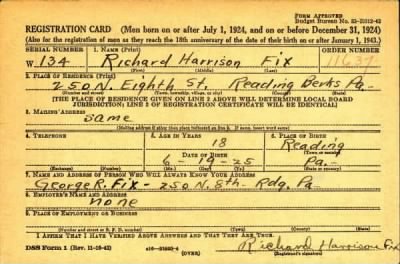 Form Approved
REGISTRATION CARD (Men born on or after July 1, 1924, and on or before December 31, 1924)
(Also for the registration of men as they reach the 18th anniversary of the date of their birth on or after January 1, 1943.)
SERIAL NUMBER 1. NAME (Print) ORDER NUMBER
W 134 Richard Harrison Fix 11637
(First) (Middle) (Last)
2. PLACE OF RESIDENCE (Print)
250 N. Eighth St. Reading Berks Pa.
(Number and street) (Town, township, village, or city) (County) (State)
[THE PLACE OF RESIDENCE GIVEN ON LINE 2 ABOVE WILL DETERMINE LOCAL BOARD
JURISDICTION; LINE 2 OF REGISTRATION CERTIFICATE WILL BE IDENTICAL]
3. MAILING ADDRESS
same
[Mailing address if other than place indicated on line 2. If same, insert word same]
4. TELEPHONE 5. AGE IN YEARS 6. PLACE OF BIRTH
18 Reading
DATE OF BIRTH (Town or county)
6 - 19 - 25 Pa.
(Exchange) (Number) (Mo.) (Day) (Yr.) (State or country)
7. NAME AND ADDRESS OF PERSON WHO WILL ALWAYS KNOW YOUR ADDRESS
George R. Fix - 250 N. 8th - Rdg. Pa
8. EMPLOYER'S NAME AND ADDRESS
none
9. PLACE OF EMPLOYMENT OR BUSINESS
(Number and street or R. F. D. number) (Town) (County) (State)
I AFFIRM THAT I HAVE VERIFIED ABOVE ANSWERS AND THAT THEY ARE TRUE.
DSS Form 1 (Rev. 11-16-42) Richard Harrison Fix
(Registrant's signature)